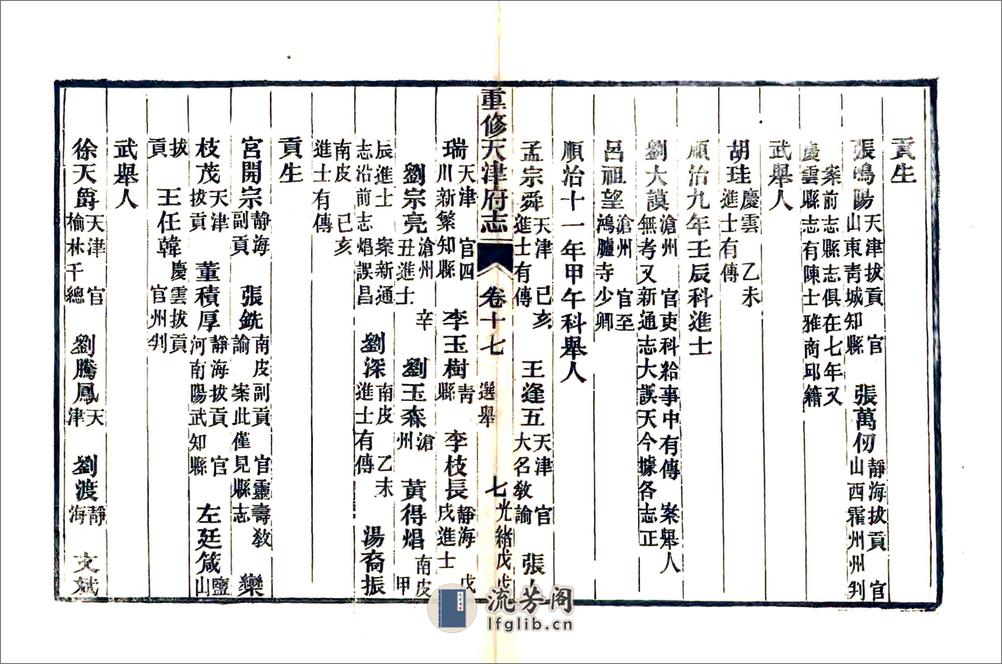 貢生
張鳴陽天津拔貢 官山東靑城知縣 張萬仞靜海拔貢 官山西霜州州判
案前志縣志俱在七年又慶雲縣志有陳士雅商邱籍
武舉人
胡珪慶雲 乙未進士有傳
順治九年壬辰科進士
劉大謨滄州 官吏科給事中有傳 案舉人無考又新通志大謨天今據各志正
呂祖望滄州 官至鴻臚寺少卿
順治十一年甲午科舉人
孟宗舜天津 己亥進士有傳 王逢五天津 官大名敎諭 張大
重修天津府志 卷十七 選舉 七 光緒戊戌
瑞天津 官四川新繁知縣 李玉樹靑縣 李枝長靜海 戊戌進士
劉宗亮滄州 辛丑進士 劉玉森滄州 黃得焻南皮 甲
辰進士 案新通志沿前志焻誤昌 劉深南皮 乙未進士有傳 湯裔振
南皮 己亥進士有傳
貢生
宮開宗靜海副貢 張銑南皮副貢 官靈壽敎諭 案此僅見縣志 欒
枝茂天津拔貢 董積厚靜海拔貢 官河南陽武知縣 左廷箴鹽山
拔貢 王任韓慶雲拔貢 官州判
武舉人
徐天爵天津 官榆林千總 劉騰鳳天津 劉渡靜海 文斌
流芳阁
lfglib.cn